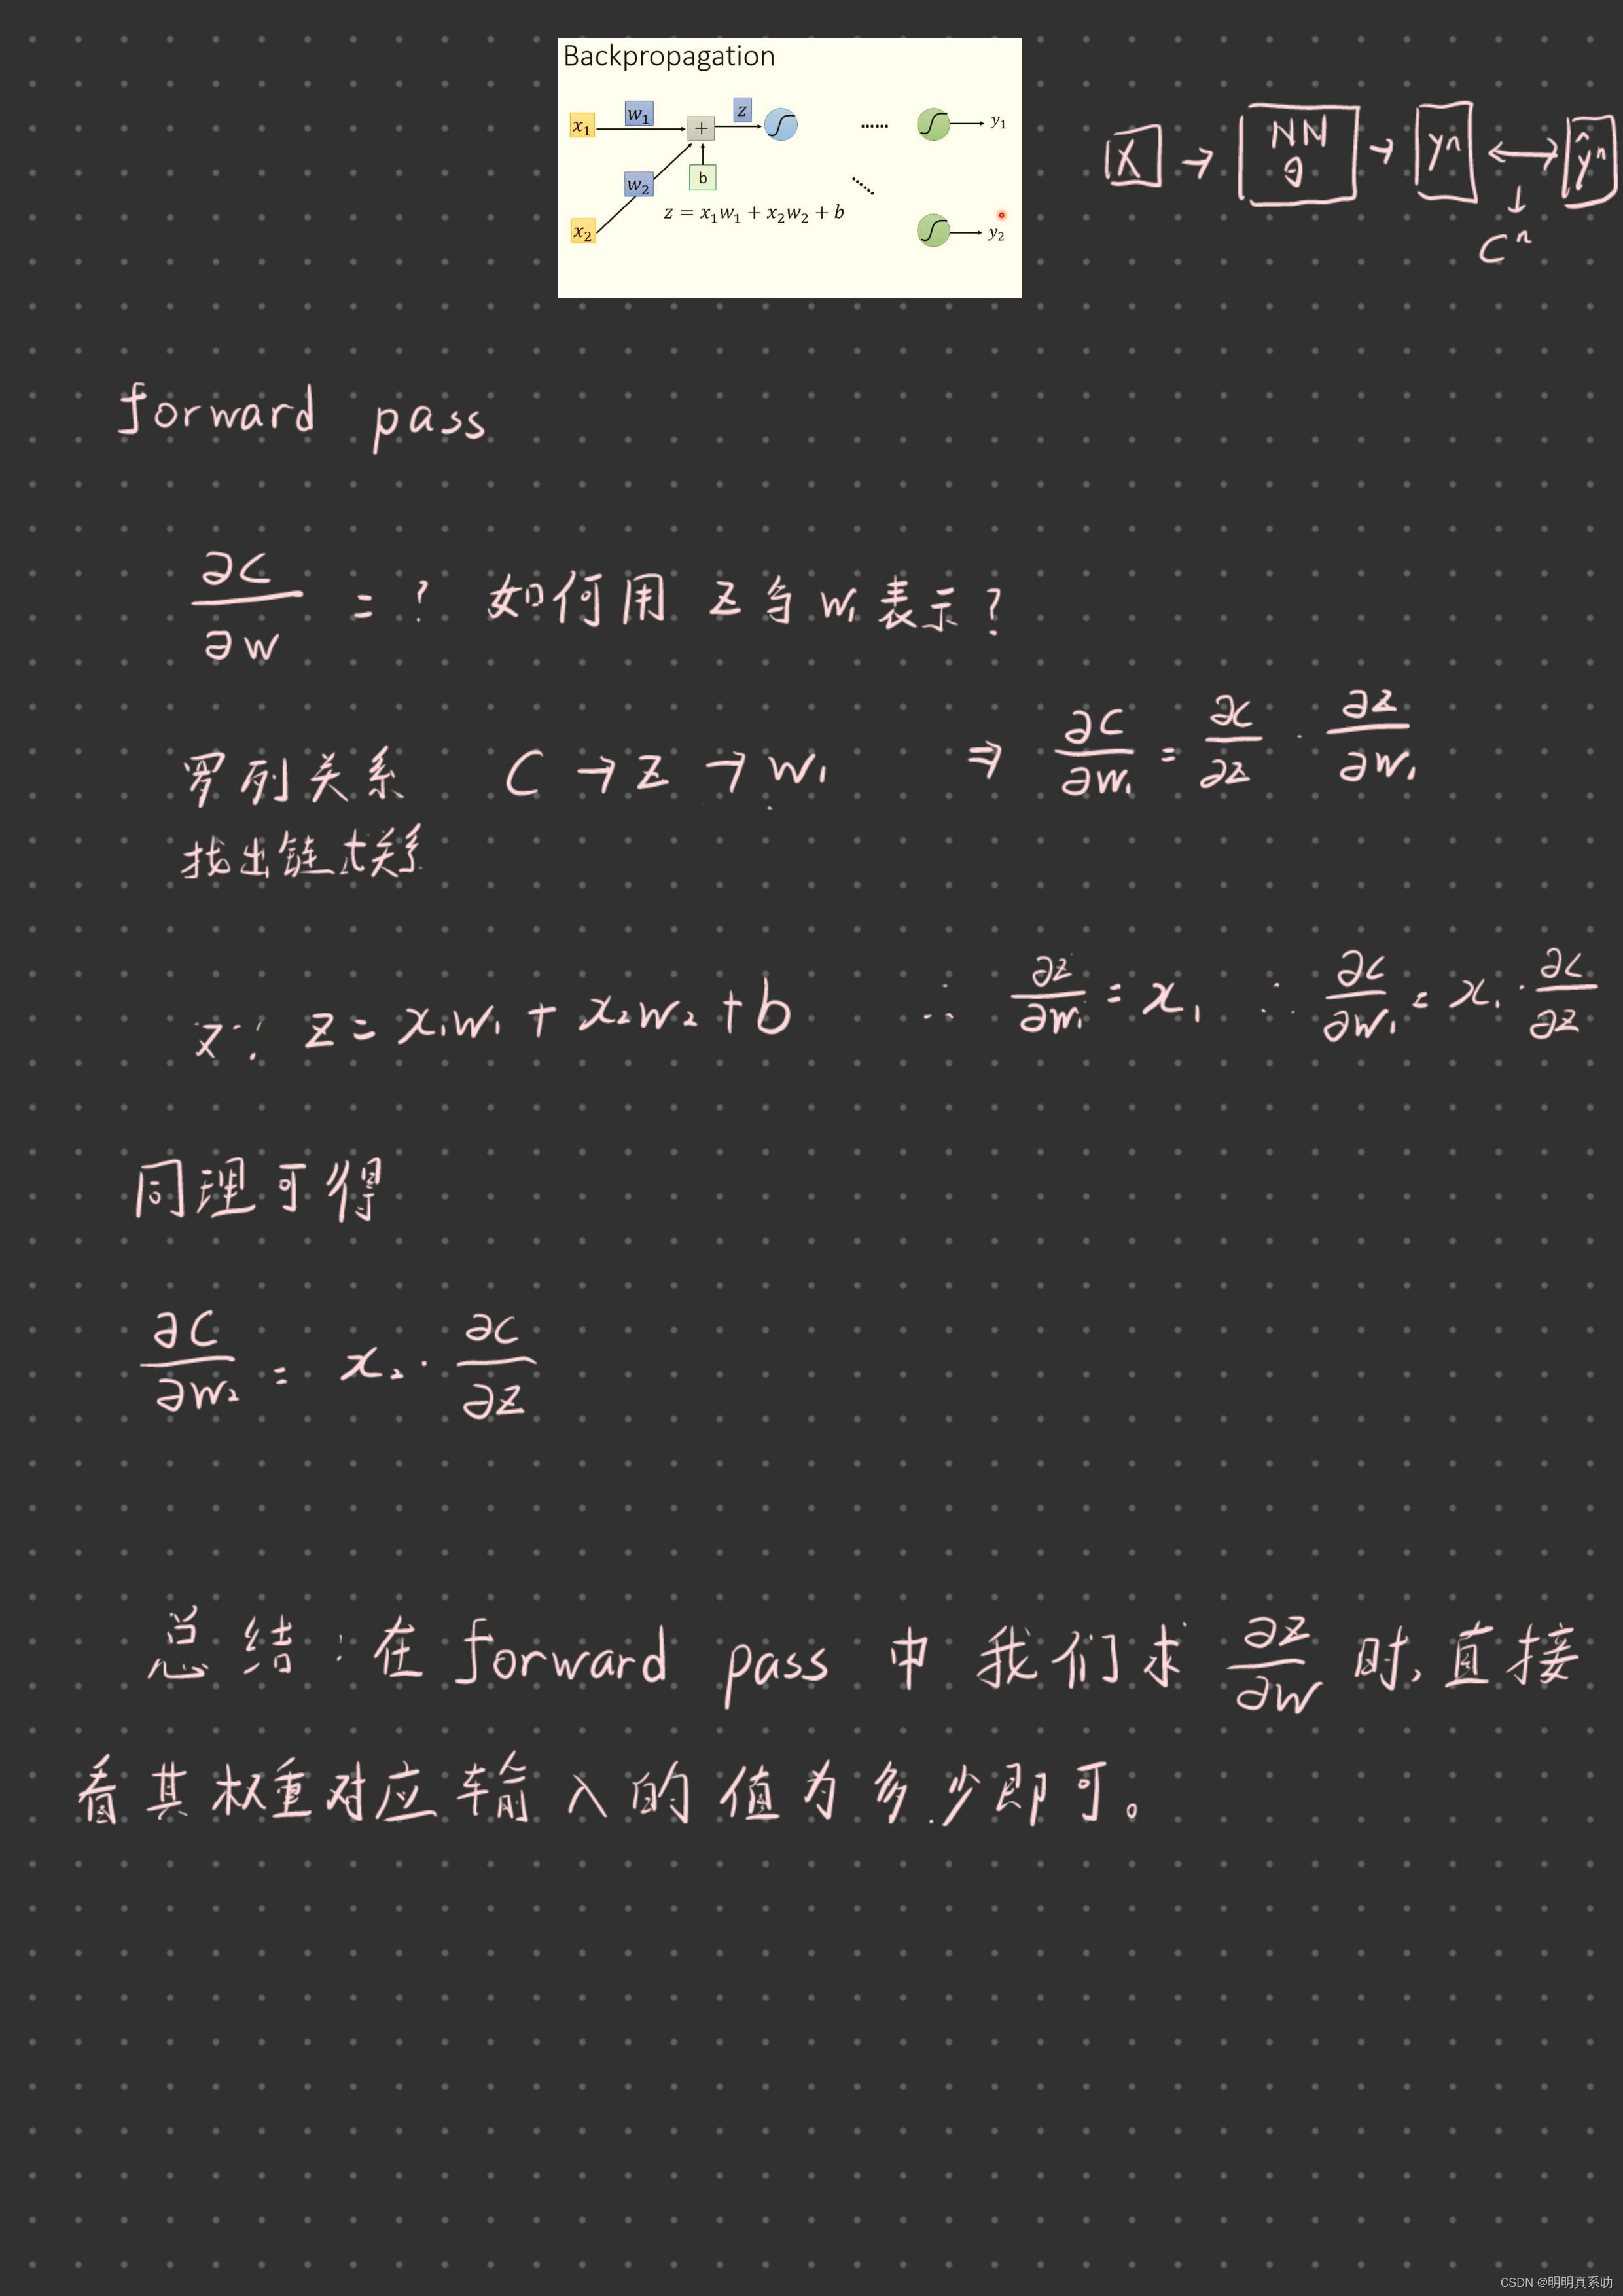 Backpropagation
x₁ w₁ + z …… y₁
w₂ b
z = x₁w₁ + x₂w₂ + b
x₂ y₂
X → NN θ → yⁿ ↔ ŷⁿ
↓
Cⁿ
forward pass
∂C/∂w = ? 如何用 z 与 w₁ 表示?
罗列关系 C → z → w₁ ⇒ ∂C/∂w₁ = ∂C/∂z · ∂z/∂w₁
找出链式关系
又∵ z = x₁w₁ + x₂w₂ + b ∴ ∂z/∂w₁ = x₁ ∴ ∂C/∂w₁ = x₁ · ∂C/∂z
同理可得
∂C/∂w₂ = x₂ · ∂C/∂z
总结:在 forward pass 中 我们求 ∂z/∂w 时,直接
看其权重对应输入的值为多少即可。
CSDN @明明真系叻